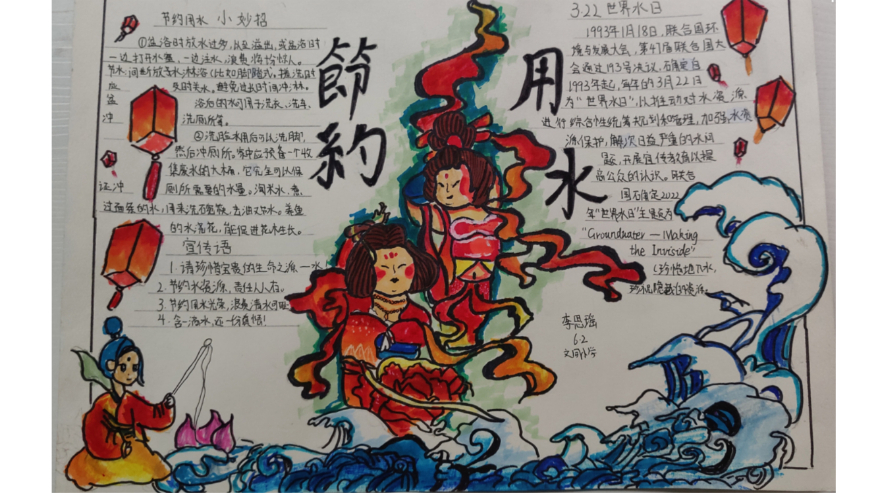 节约用水 小妙招
①盆浴时放水过多,以至溢出,或盆浴时
一边打开水塞,一边注水,浪费将惊人。
节水 间断放卷水淋浴(比如脚踏式),搓洗时
应 及时关水,避免过长时间冲淋。
盆 浴后的水可用于洗衣、洗车、
冲 洗厕所等。
②洗脸水用后可以洗脚,
然后冲厕所。家中应预备一个收
集废水的大木桶,它完全可以保
证冲 厕所需要的水量。淘米水、煮
过面条的水,用来洗碗筷,去油又节水。养鱼
的水浇花,能促进花木生长。
宣传语
1.请珍惜宝贵的生命之源—水
2.节约水资源,责任人人有。
3.节约用水光荣,浪费清水可耻
4.含一滴水,还一份真情!
節約
用水
3.22 世界水日
1993年1月18日,联合国环
境与发展大会,第47届联合国大
会通过193号决议,确定自
1993年起,每年的3月22日
为“世界水日”,以推动对水资源
进行综合性统筹规划和管理,加强水资
源保护,解决日益严重的水问
题,开展宣传教育以提
高公众的认识。联合
国确定2022
年“世界水日”主题为
“Groundwater — Making
the Invisible”
(珍惜地下水,
珍视隐藏的资源)。
李思瑶
6.2